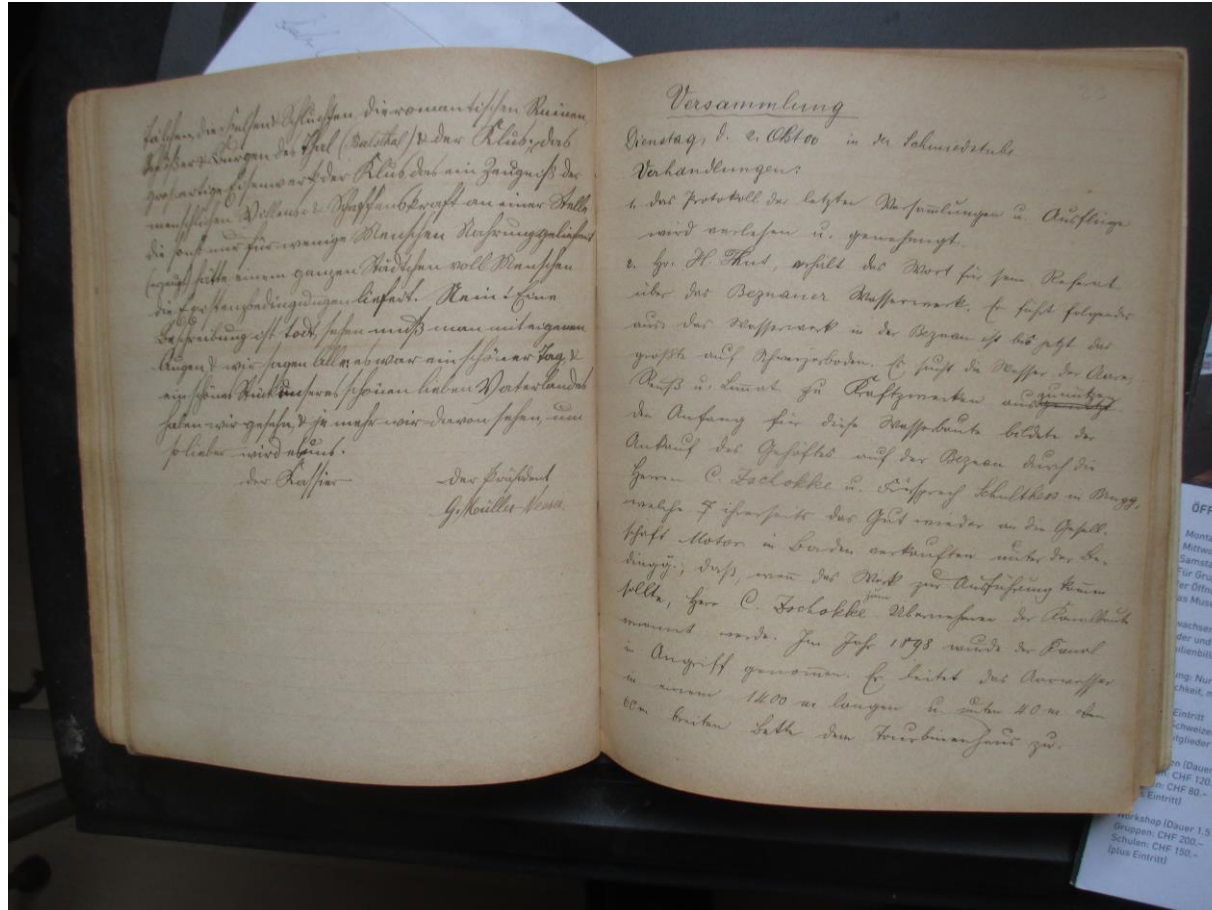 fälchen die Felsens Schluchten die romantischen Ruinen
Schlößer & Burgen des Thal (Balsthal) & der Klus, das
großartige Eisenwerk der Klus das ein Zeugniß des
menschlichen Wollens & Schaffenskraft an einer Stelle
die sonst nur für wenige Menschen Nahrung geliefert
hätte einem ganzen Städtchen voll Menschen
die Existenzbedingungen liefert. Nein! Eine
Beschreibung ist todt, sehen muß man mit eigenen
Augen & wir sagen Alle, es war ein schöner Tag &
ein schönes Stück unseres schönen lieben Vaterlandes
haben wir gesehn, & je mehr wir davon sehen, um
so lieber wird es uns.
der Kassier der Präsident
G. Müller
Versammlung
Dienstag, d. 2. Okt 00 in der Schmiedstube
Verhandlungen:
1. Das Protokoll der letzten Versammlungen u. Ausflüge
wird verlesen u. genehmigt.
2. Hr. H. Thut, erhält das Wort für sein Referat
über das Beznauer Wasserwerk. Er führt folgendes
aus: Das Wasserwerk in der Beznau ist bis jetzt das
größte auf Schweizerboden. Es sucht die Wasser der Aare,
Reuß u. Limat zu Kraftzwecken auszunützen
Den Anfang für diese Wasserbaute bildete der
Ankauf des Gehöftes auf der Beznau durch die
Herren C. Zschokke u. Fürsprech Schulthess in Brugg,
welche ihrerseits das Gut wieder an die Gesell-
schaft Motor in Baden verkauften unter der Be-
dingg., daß, wen̅ das Werk zur Ausführung kom̅en
sollte, Herr C. Zschokke zum Übernehmer der Kanalbaute
ernannt werde. Im Jahr 1898 wurde der Kanal
in Angriff genom̅en. Er leitet das Aarwasser
in einem 1400 m langen u. unten 40 m oben
60 m breiten Bette dem Trurbinenhaus zu.
ÖFF
Monta
Mittwo
Samsta
Für Gru
der Öffn
as Muse
wachsen
der und
ilienbill
ng: Nur
chkeit, m
Eintritt
chweize
itglieder
en (Dauer
n: CHF 120.
n: CHF 80.–
s Eintritt)
Workshop (Dauer 1.5
Gruppen: CHF 200.–
Schulen: CHF 150.–
(plus Eintritt)